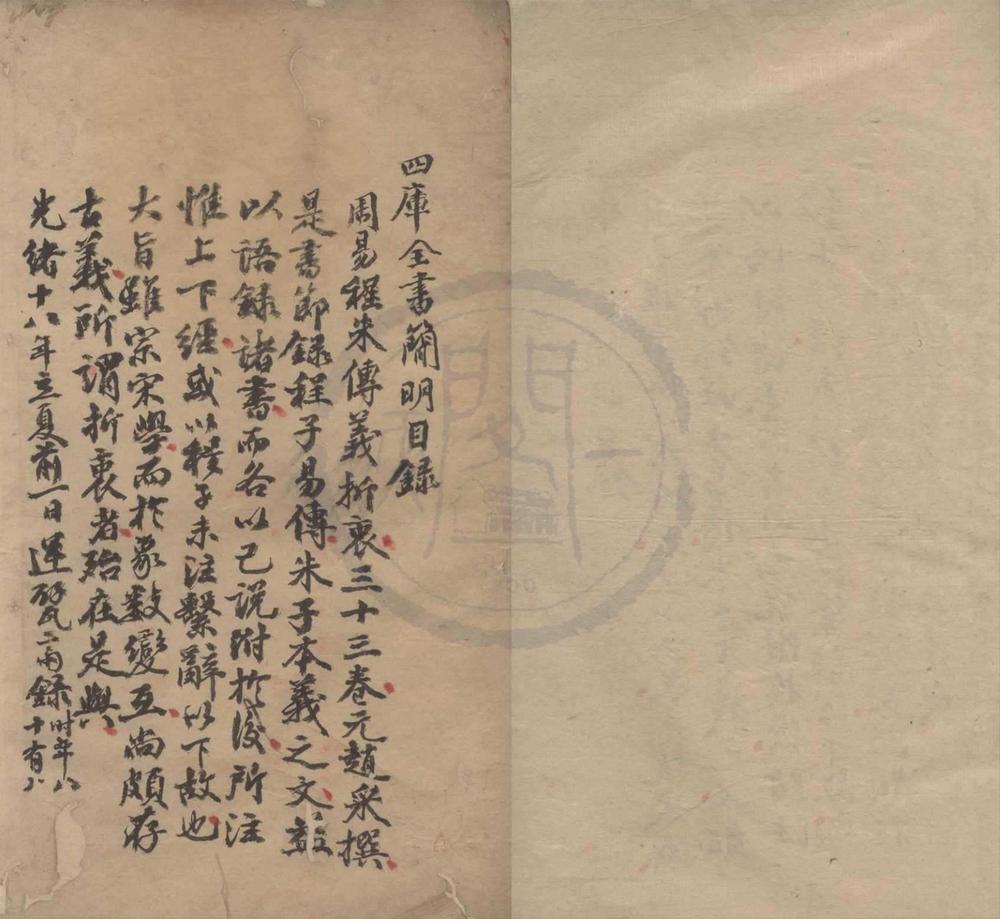 四庫全書簡明目録
周易程朱傳義折衷三十三卷元趙采撰
是書節録程子易傳朱子本義之文益
以語録諸書而各以己説附於後所注
惟上下經或以程子未注繫辭以下故也
大旨雖宗宋學而於象數變互尚頗存
古義所謂折衷者殆在是與
光緒十八年立夏前一日運甓齋録時年八十有八